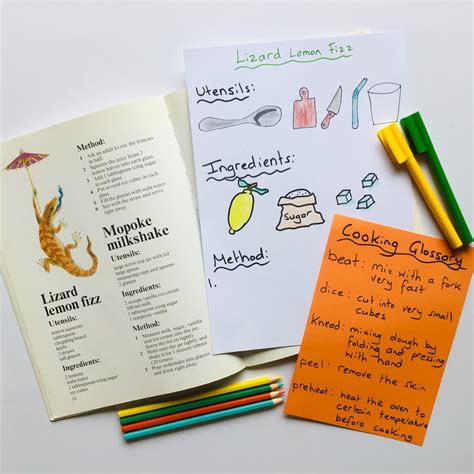 Method:
1 Ask an adult to cut the lemons
in half.
2 Squeeze the juice from 2
lemons into each glass.
3 Add 1 tablespoon icing sugar
to each glass.
4 Put several ice cubes in each
glass.
5 Fill the glasses with soda water.
6 Stir with the straw and serve
right away.
Lizard
lemon fizz
Utensils:
lemon squeezer
tablespoon
chopping board
knife
2 straws
2 glasses
Ingredients:
2 lemons
soda water
2 tablespoons icing sugar
ice cubes
24
Mopoke
milkshake
Utensils:
large screw-top jar with lid
large spoon
measuring cups and spoons
2 glasses
Ingredients:
2 scoops vanilla ice-cream
milk
1 tablespoon icing sugar
1 teaspoon vanilla
Method:
1 Measure milk, sugar, vanilla
and ice-cream into jar.
Screw on the lid tightly.
2 Hold onto the lid tightly and
shake for 1 minute (about
3 Pour milkshake into glasses
and drink right away.
Lizard Lemon Fizz
Utensils:
Ingredients:
Sugar
Method:
1.
Cooking Glossary
beat: Mix with a fork
very fast
dice: cut into very small
cubes
Knead: mixing dough by
folding and pressing
with hand
peel: remove the skin
preheat: heat the oven to
certain temperature
before cooking